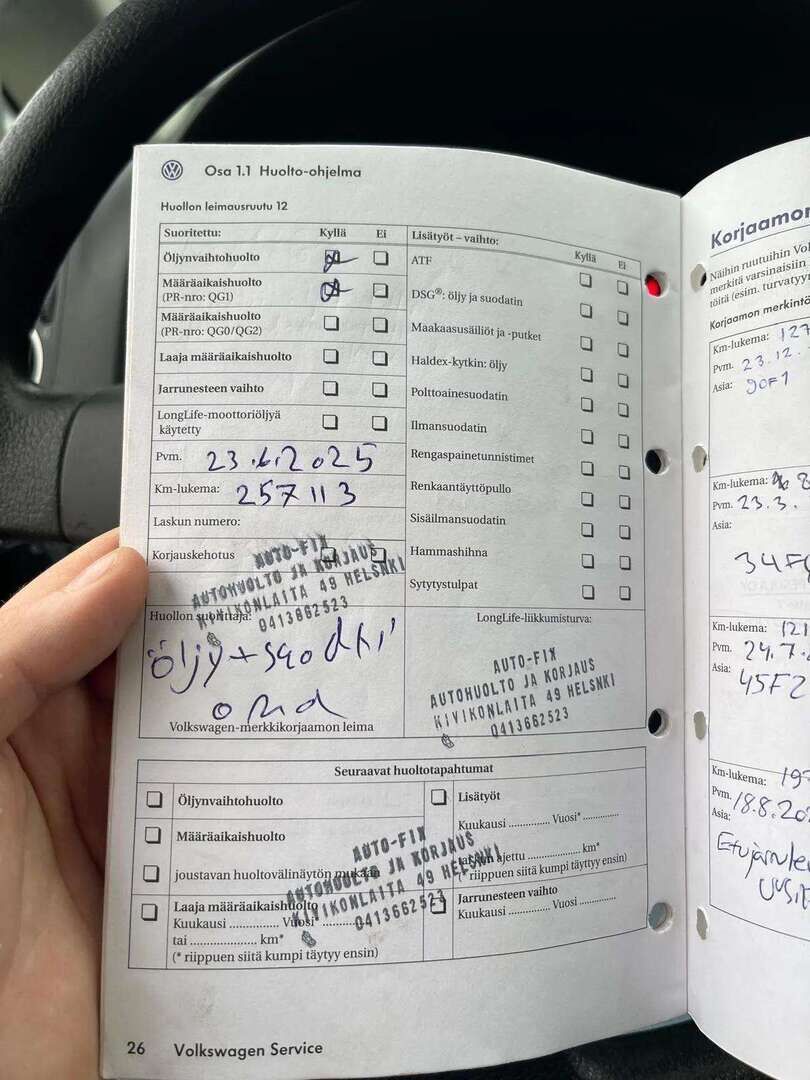 Osa 1.1 Huolto-ohjelma
Huollon leimausruutu 12
Suoritettu: Kyllä Ei
Öljynvaihtohuolto
Määräaikaishuolto
(PR-nro: QG1)
Määräaikaishuolto
(PR-nro: QG0/QG2)
Laaja määräaikaishuolto
Jarrunesteen vaihto
LongLife-moottoriöljyä
käytetty
Pvm. 23.6.2025
Km-lukema: 257113
Laskun numero:
Korjauskehotus
AUTO-FIX
AUTOHUOLTO JA KORJAUS
KIVIKONLAITA 49 HELSNKI
0413662523
Huollon suorittaja:
öljy + suodki
oma
Volkswagen-merkkikorjaamon leima
Lisätyöt – vaihto: Kyllä Ei
ATF
DSG®: öljy ja suodatin
Maakaasusäiliöt ja -putket
Haldex-kytkin: öljy
Polttoainesuodatin
Ilmansuodatin
Rengaspainetunnistimet
Renkaantäyttöpullo
Sisäilmansuodatin
Hammashihna
Sytytystulpat
LongLife-liikkumisturva:
AUTO-FIX
AUTOHUOLTO JA KORJAUS
KIVIKONLAITA 49 HELSNKI
0413662523
Seuraavat huoltotapahtumat
Öljynvaihtohuolto
Määräaikaishuolto
joustavan huoltovälinäytön mukaan
Laaja määräaikaishuolto
Kuukausi .............. Vuosi* ..............
tai ..................... km*
(* riippuen siitä kumpi täytyy ensin)
Lisätyöt
Kuukausi .............. Vuosi* ..............
ajettu ..................... km*
(* riippuen siitä kumpi täytyy ensin)
Jarrunesteen vaihto
Kuukausi .............. Vuosi ..............
AUTO-FIX
AUTOHUOLTO JA KORJAUS
KIVIKONLAITA 49 HELSNKI
0413662523
26 Volkswagen Service
Korjaamon
Näihin ruutuihin
merkitä varsinaisiin
töitä (esim. turvatyyn
Korjaamon merkintö
Km-lukema: 127
Pvm. 23.12.
Asia: 90F1
Km-lukema:
Pvm. 23.3.
Asia:
Km-lukema: 121
Pvm. 24.7.
Asia: 45F2
Km-lukema: 197
Pvm. 18.8.20
Asia: